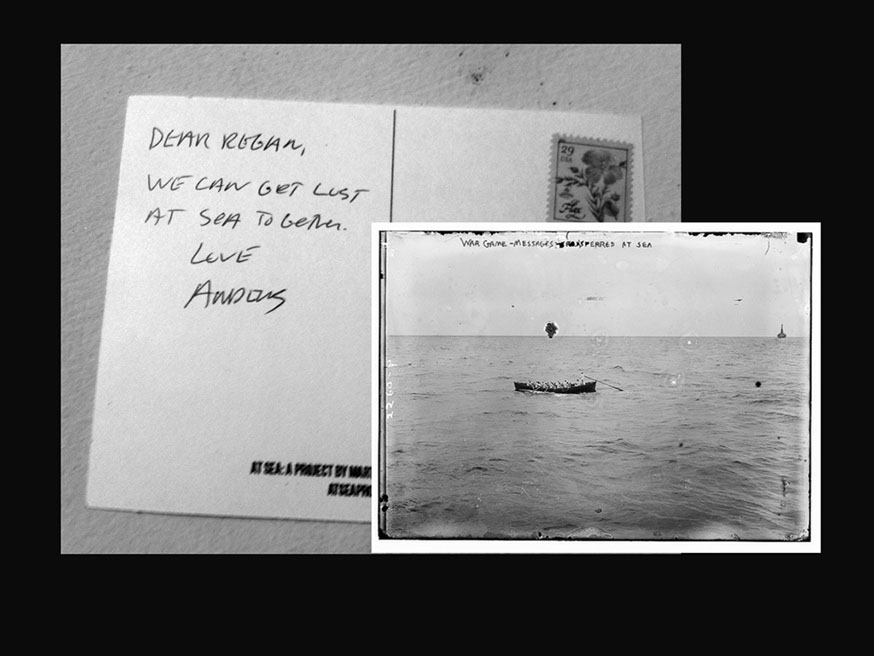 DEAR REGAN,
WE CAN GET LOST
AT SEA TOGETHER.
LOVE
ANDERS
29
USA
AT SEA: A PROJECT BY MART
ATSEAPR
WAR GAME - MESSAGES TRANSFERRED AT SEA